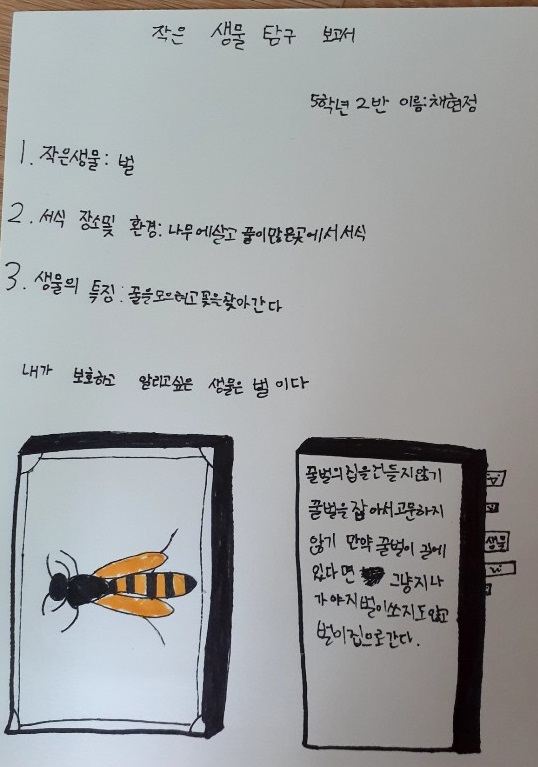 작은 생물 탐구 보고서
5학년 2반 이름:채현정
1. 작은생물: 벌
2. 서식 장소및 환경: 나무에살고 풀이많은곳에서 서식
3. 생물의 특징: 꿀을모으려고 꽃을찾아간다
내가 보호하고 알리고싶은 생물은 벌이다
꿀벌의집을건들지않기
꿀벌을잡아서고문하지
않기 만약 꿀벌이 길에
있다면 그냥지나
가야지벌이쏘지도않고
벌이집으로간다.
생물